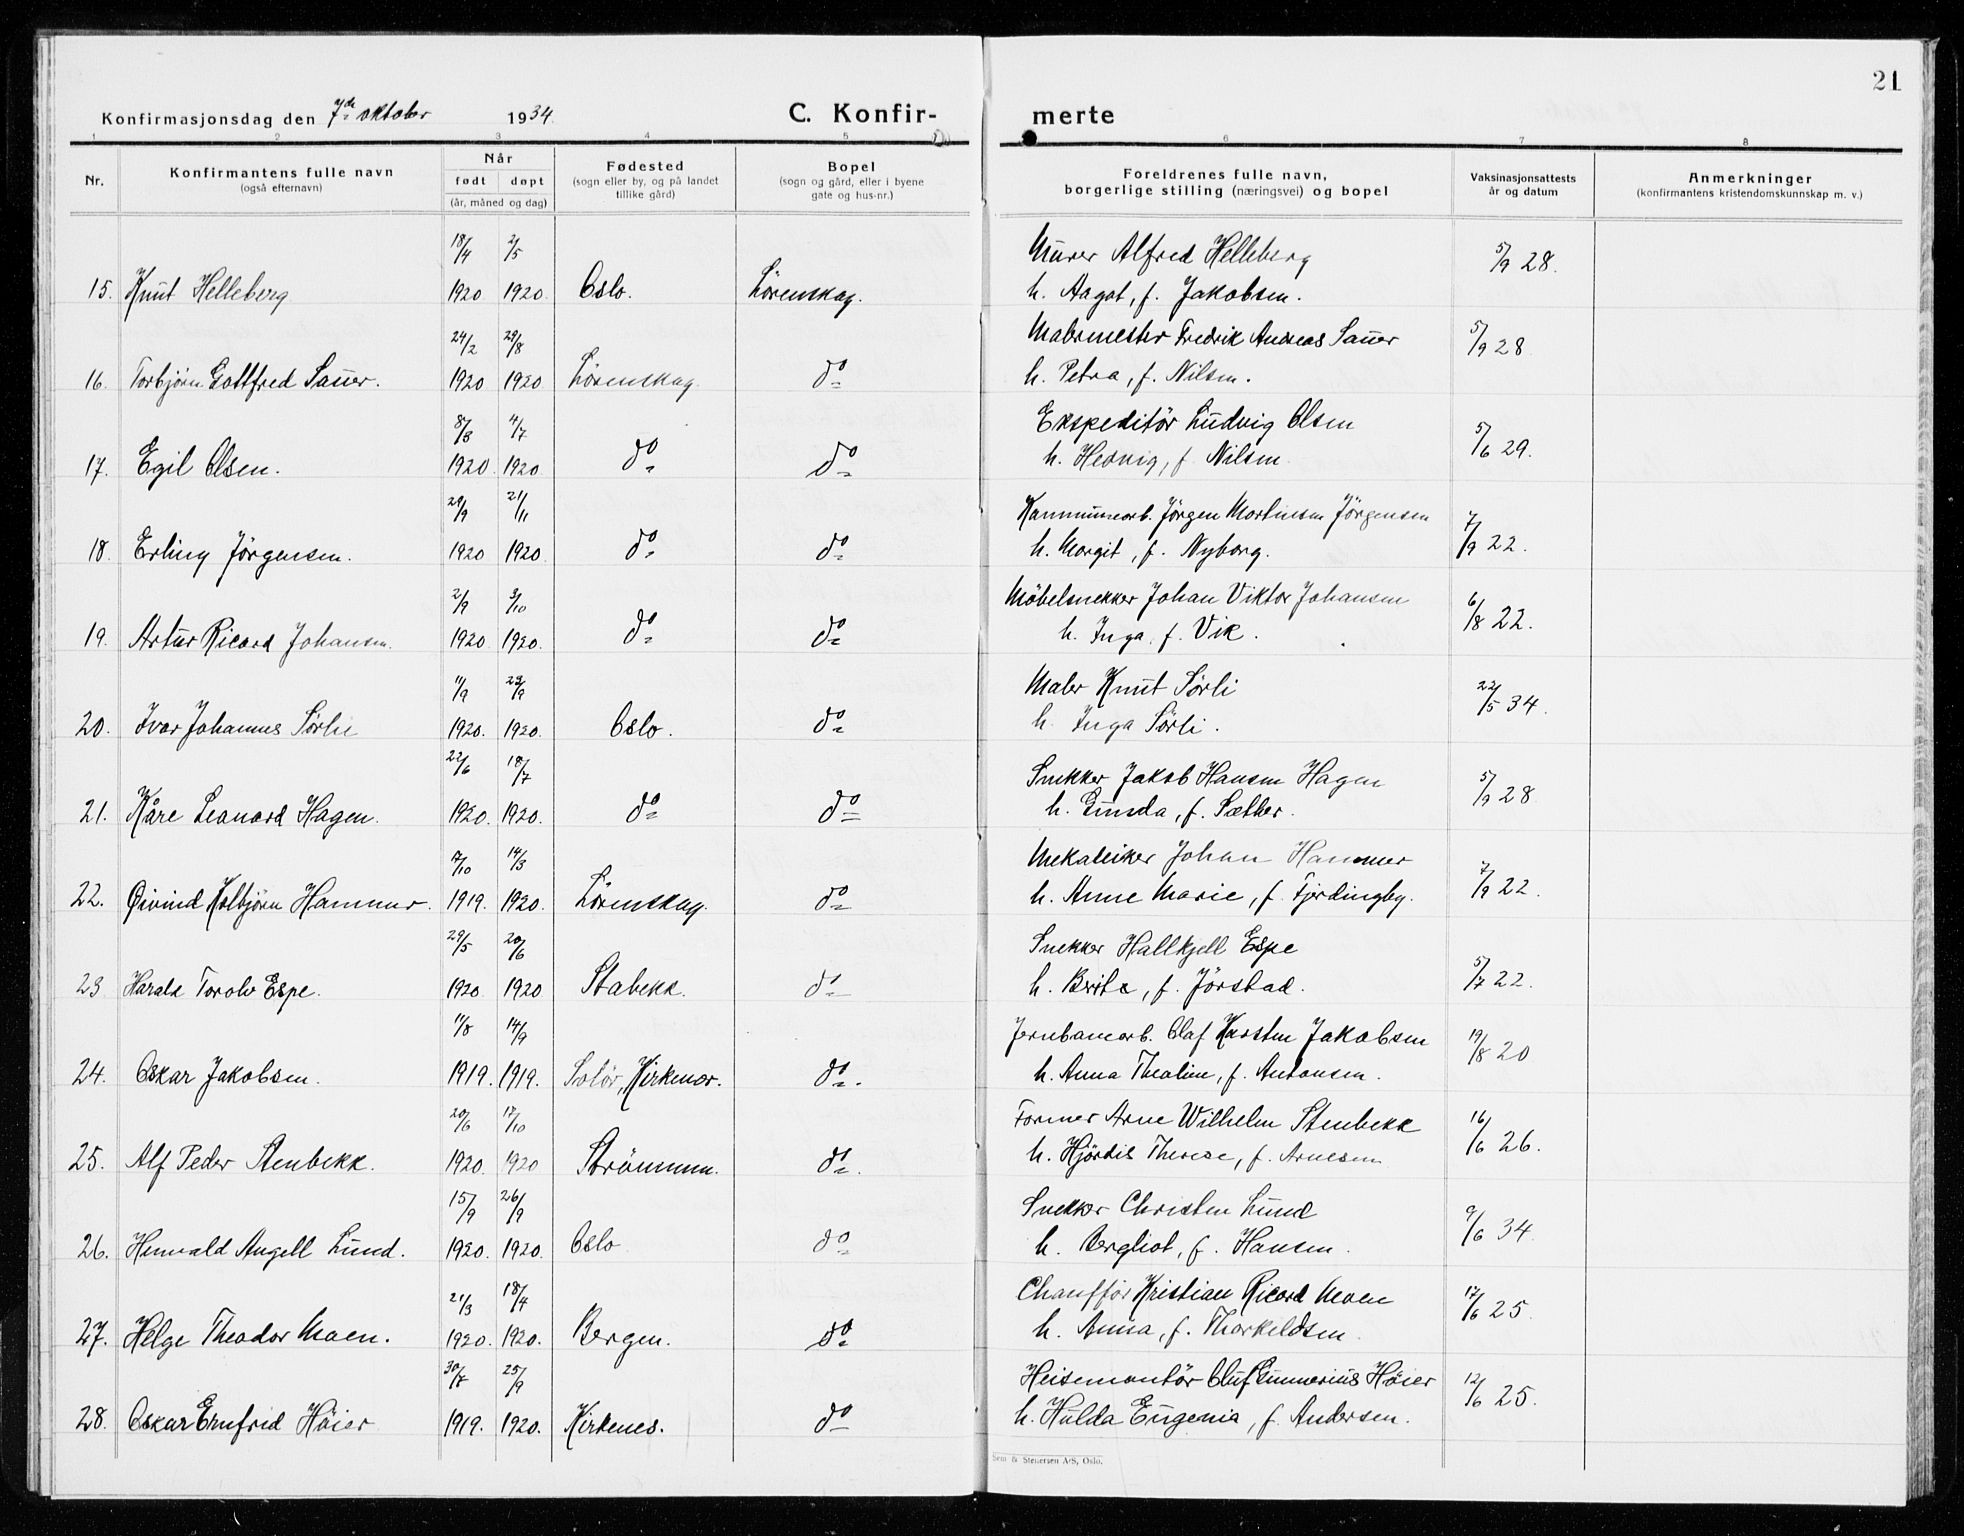 21
Konfirmasjonsdag den 7de oktober 1934 C. Konfir- merte
1 2 3 4 5 6 7 8
Nr.
Konfirmantens fulle navn
(også efternavn)
Når
født døpt
(år, måned og dag)
Fødested
(sogn eller by, og på landet
tillike gård)
Bopel
(sogn og gård, eller i byene
gate og hus-nr.)
Foreldrenes fulle navn,
borgerlige stilling (næringsvei) og bopel
Vaksinasjonsattests
år og datum
Anmerkninger
(konfirmantens kristendomskunnskap m. v.)
18/4 2/5 Murer Alfred Helleberg 5/9 28.
15. Knut Helleberg 1920 1920. Oslo. Lørenskog. h. Aagot, f. Jakobsen.
24/2 29/8 Malermester Fredrik Andreas Sauer 5/9 28
16. Torbjørn Gottfred Sauer. 1920 1920 Lørenskog. do h. Petra, f. Nilsen.
8/3 4/7 Ekspeditör Ludvig Olsen 5/6 29.
17. Egil Olsen. 1920. 1920. do do h. Hedvig, f. Nilsen.
29/9 21/11 Kommunearb. Jörgen Martinsen Jörgensen 7/9 22.
18. Erling Jörgensen. 1920 1920 do do h. Margit, f. Nyborg.
2/9 3/10 Möbelsnekker Johan Viktor Johansen 6/8 22.
19. Artur Ricard Johansen. 1920 1920. do do h. Inga. f. Vik.
11/9 29/9 Maler Knut Sörli 22/5 34.
20. Ivar Johannes Sörlie 1920. 1920. Oslo. do h. Inga Sörli.
22/6 18/7 Snekker Jakob Hansen Hagen 5/9 28
21. Kåre Leonard Hagen. 1920. 1920. do do h. Gunda, f. Sæther.
17/10 14/3 Mekaniker Johan Hammer 7/9 22.
22. Øivind Kolbjörn Hammer. 1919. 1920. Lörenskog. do h. Anne Marie, f. Fjerdingby.
29/5 20/6 Snekker Hallkjell Espe 5/7 22.
23 Harald Torolv Espe. 1920 1920 Stabekk. do h. Brita, f. Jörstad.
11/8 14/9 Jernbanearb. Olaf Karsten Jakobsen 19/8 20
24. Oskar Jakobsen. 1919. 1919. Solör, Kirkenær. do. h. Anna Thealine, f. Antonsen.
20/6 17/10 Former Arne Wilhelm Stenbekk 16/6 26.
25. Alf Peder Stenbekk. 1920. 1920 Strömmen. do. h. Hjördis Therese, f. Arnesen
15/9 26/9 Snekker Christen Lund 9/6 34.
26. Henvald Angell Lund. 1920. 1920. Oslo do h. Bergliot, f. Hansen.
21/3 18/4 Chaufför Kristian Ricard Moen 17/6 25.
27. Helge Theodor Moen. 1920. 1920. Bergen. do h. Anna, f. Thorkeldsen.
30/8 25/9 Heisemontör Oluf Gunnerius Höier 12/6 25.
28. Oskar Ernfrid Höier 1919. 1920. Kirkenes. do h. Hulda Eugenia, f. Andersen.
Sem & Stenersen A/S, Oslo.